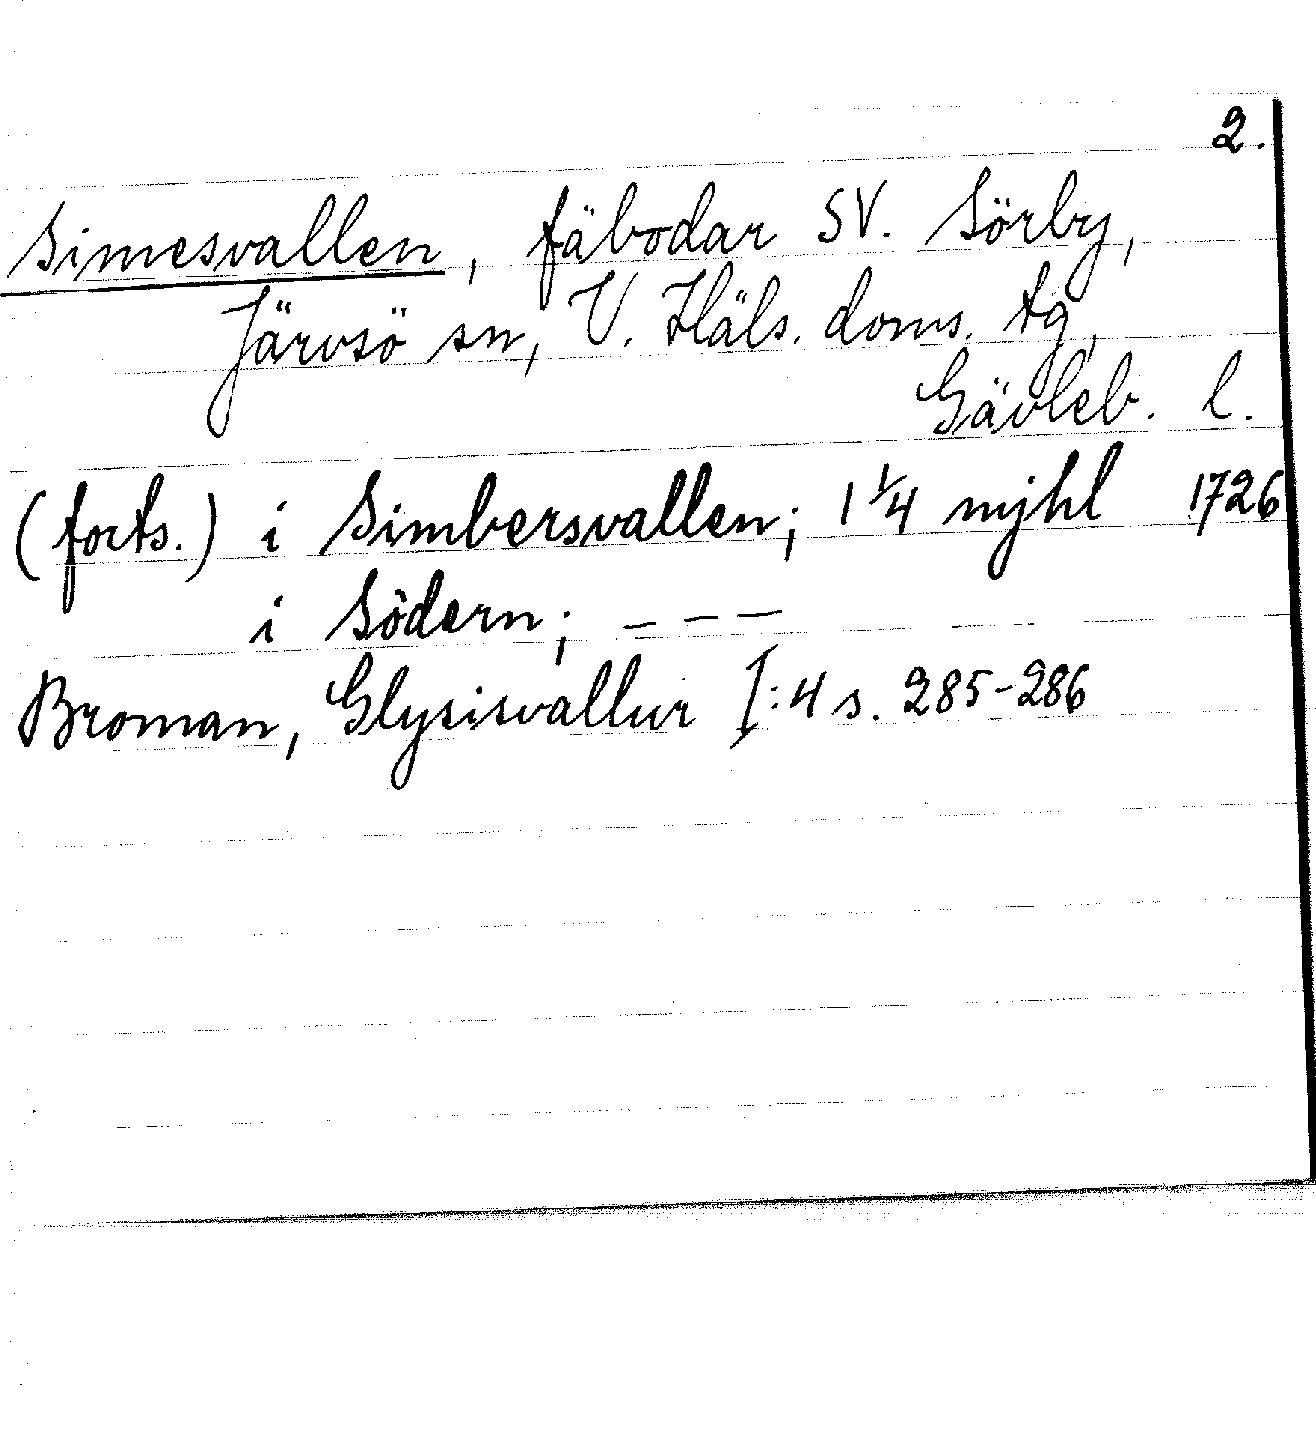 2.
Simesvallen, fäbodar SV. Sörby,
Järvsö sn, V. Häls. doms. tg,
Gävleb. l.
(forts.) i Simbersvallen; 1 1/4 mjhl 1726
i Södern; – – –
Broman, Glysisvallur I:4 s. 285-286